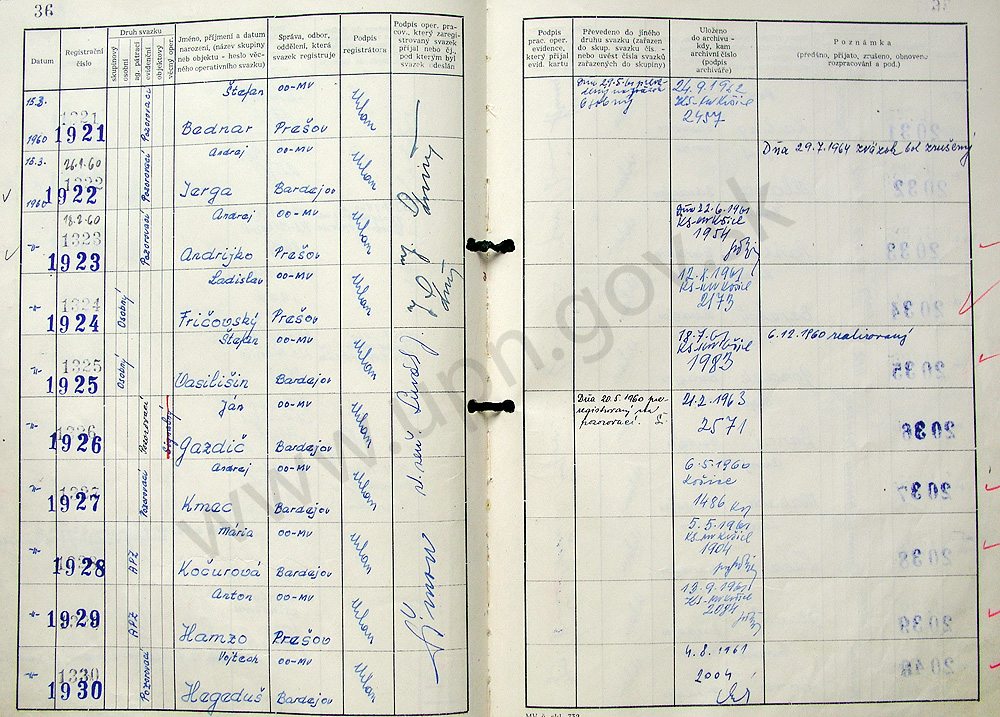 36
Datum
Registrační číslo
Druh svazku
skupinový
osobní
ag. pátrací
evidenční
objektový
věcný oper.
Jméno, příjmení a datum narození, (název skupiny neb objektu - heslo věcného operativního svazku)
Správa, odbor, oddělení, která svazek registruje
Podpis registrátora
Podpis oper. pracov., který zaregistrovaný svazek přijal nebo čj., pod kterým byl svazek odeslán
Podpis prac. oper. evidence, který přijal evid. kartu
Převedeno do jiného druhu svazku (zařazen do skup. svazku čís. - nebo uvést čísla svazků zařazených do skupiny)
Uloženo do archivu - kdy, kam archivní číslo (podpis archiváře)
Poznámka
(předáno, přijato, zrušeno, obnoveno rozpracování a pod.)
15.3. 1960
1921
Pozorovací
Štefan
Bednar
OO-MV
Prešov
24.9.1962
KS-MV Košice
2457
15.3. 1960
26.1.60
1922
Pozorovací
Andrej
Jerga
OO-MV
Bardejov
Dňa 29.7.1964 zväzok bol zrušený
18.2.60
1323
1923
Pozorovací
Andrej
Andrijko
OO-MV
Prešov
Dňa 22.6.1961
KS-MV Košice
1954
1324
1924
Osobný
Ladislav
Fričovský
OO-MV
Prešov
12.X.1961
KS-MV Košice
2173
1325
1925
Osobný
Štefan
Vasilišin
OO-MV
Bardejov
18.7.61
KS-MV Košice
1983
6.12.1960 realizovaný
1926
Pozorovací
Signálny
Ján
Gazdič
OO-MV
Bardejov
Dňa 20.5.1960 preregistrovaný na pozorovací.
21.2.1963
2571
1927
Pozorovací
Andrej
Kmec
OO-MV
Bardejov
6.5.1960
Košice
1486
1928
APZ
Mária
Kočurová
OO-MV
Bardejov
5.5.1961
KS-MV Košice
1904
1929
APZ
Anton
Hamzo
OO-MV
Prešov
13.9.1961
KS-MV Košice
2084
1330
1930
Pozorovací
Vojtech
Hegeduš
OO-MV
Bardejov
4.8.1961
2004
www.upn.gov.sk